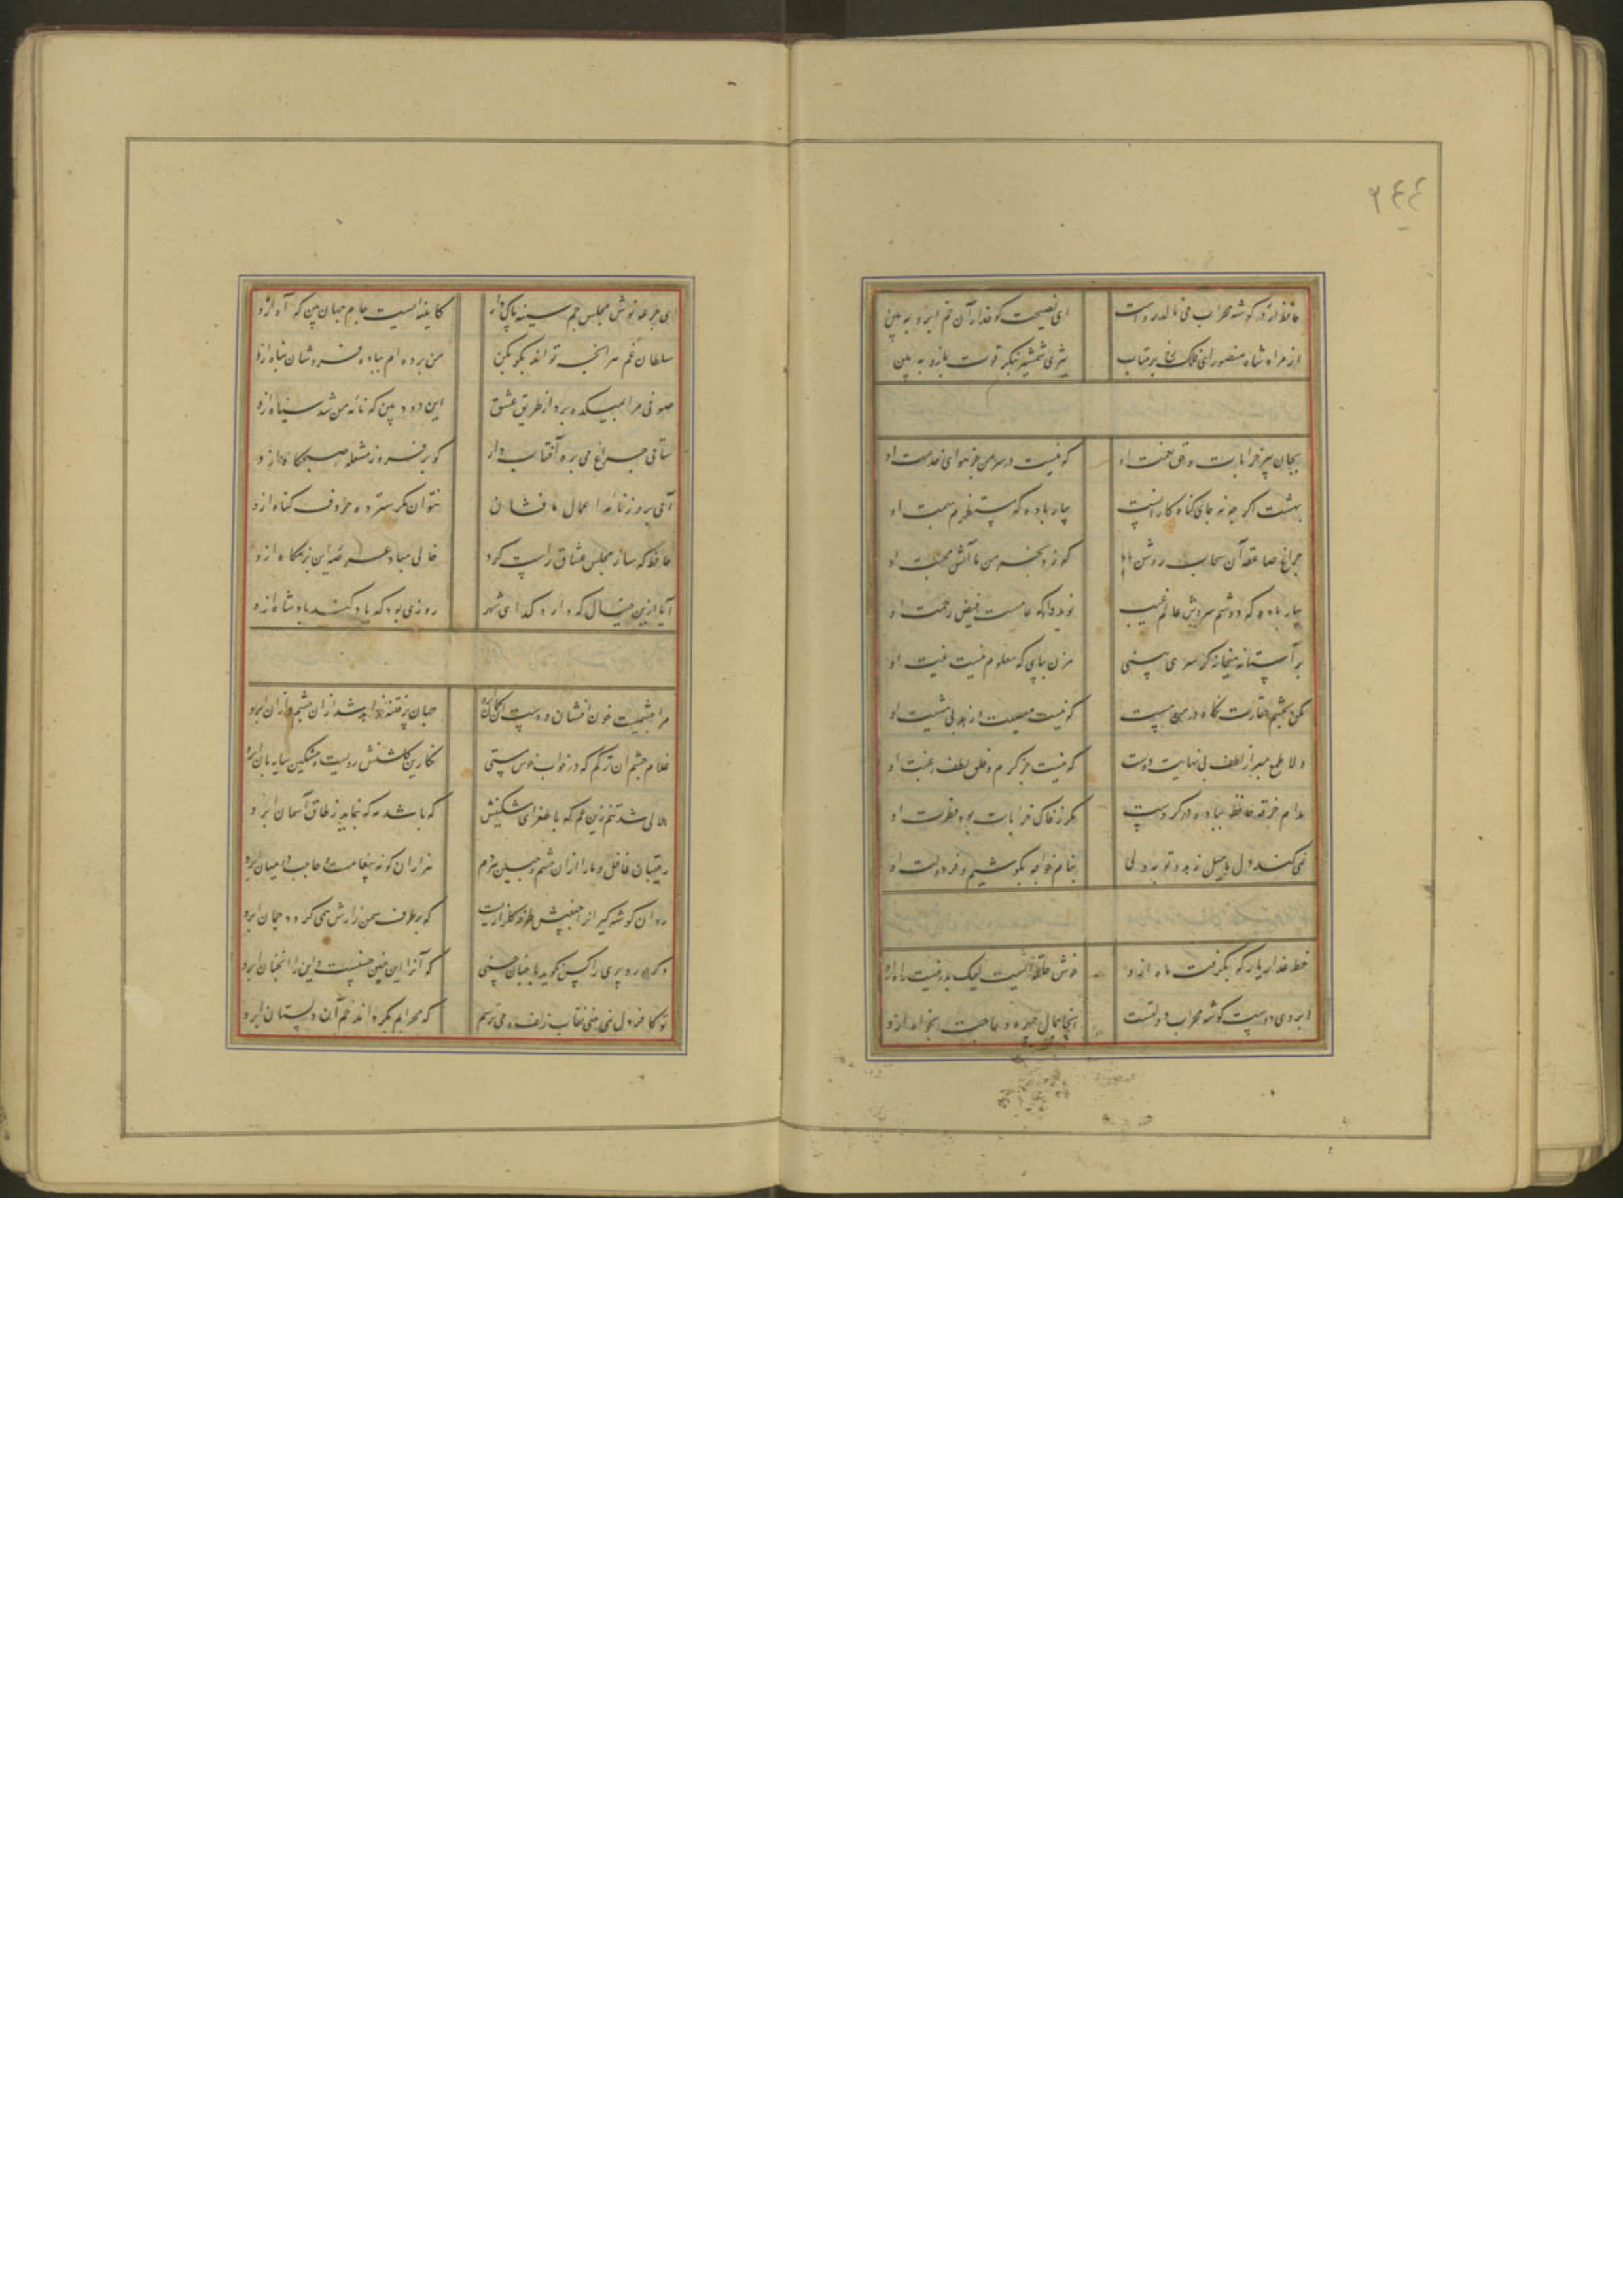 ٢٤٤
حافظ ار در کوشه محراب می نالد رواست ای نصیحت کو خدا را آن خم ابرو به بین
از مراد شاه منصور ای فلک رخ بر متاب تیزی شمشیر بنکر قوت بازو به بین
بجان پیر خرابات و حق نعمت او که نیست در سر من جز هوای خدمت او
بهشت اکر چه نه جای کناه کارانست بیار باده که مستظهرم بهمت او
چراغ صاعقه آن سحاب روشن باد که زد بخرمن ما آتش محبت او
بیار باده که دوشم سروش عالم غیب نوید داد که عامست فیض رحمت او
بر آستانه میخانه کر سری بینی مزن بپای که معلوم نیست نیت او
مکن بچشم حقارت نکاه در من مست که نیست معصیت و زهد بی مشیت او
دلا طمع مبر از لطف بی نهایت دوست که
مدام خرقه حافظ بباده در کروست مکر ز خاک خرابات بود فطرت او
نمی کند دل من میل زهد و توبه ولی بنام خواجه بکوشیم و فر دولت او
خط عذار یار که بکرفت ماه ازو خوش حلقه ایست لیک بدر نیست راه ازو
ابروی دوست کوشه محراب دولتست آنجا بمال چهره و حاجت بخواه ازو
ای جرعه نوش مجلس جم سینه پاک دار کاینه ایست جام جهان بین که آه ازو
سلطان غم هر آنچه تواند بکو بکن من برده ام بباده فروشان پناه ازو
صوفی مرا بمیکده برد از طریق عشق این دود بین که نامه من شد سیاه ازو
ساقی چراغ می بره آفتاب دار کو بر فروز مشعله صبحکاه ازو
آبی بروزنامه اعمال ما فشان بتوان مکر سترده حروف کناه ازو
حافظ که ساز مجلس عشاق راست کرد خالی مباد عرصه این بزمکاه ازو
آیا ازین خیال که دارد کدای شهر روزی بود که یاد کند پادشاه ازو
مرا چشمیست خون افشان ز دست آن کمان ابرو جهان پر فتنه خواهد شد از ان چشم و از ان ابرو
غلام چشم آن ترکم که در خواب خوش مستی نکارین کلشنش رویست و مشکین سایه بان ابرو
هلالی شد تنم زین غم که با طغرای مشکینش که باشد مه که بنماید ز طاق آسمان ابرو
رقیبان غافل و ما را از ان چشم و جبین هردم هزاران کونه پیغامست و حاجب در میان ابرو
روان کوشه کیر انرا جبینش طرفه کلزاریست که بر طرف سمن زارش همی کردد چمان ابرو
دکر حور و پری را کس نکوید با چنان حسنی که آنرا این چنین چشمست و این را آنچنان ابرو
تو کافر دل نمی بندی نقاب زلف و می ترسم که محرابم بکرداند خم آن دلستان ابرو